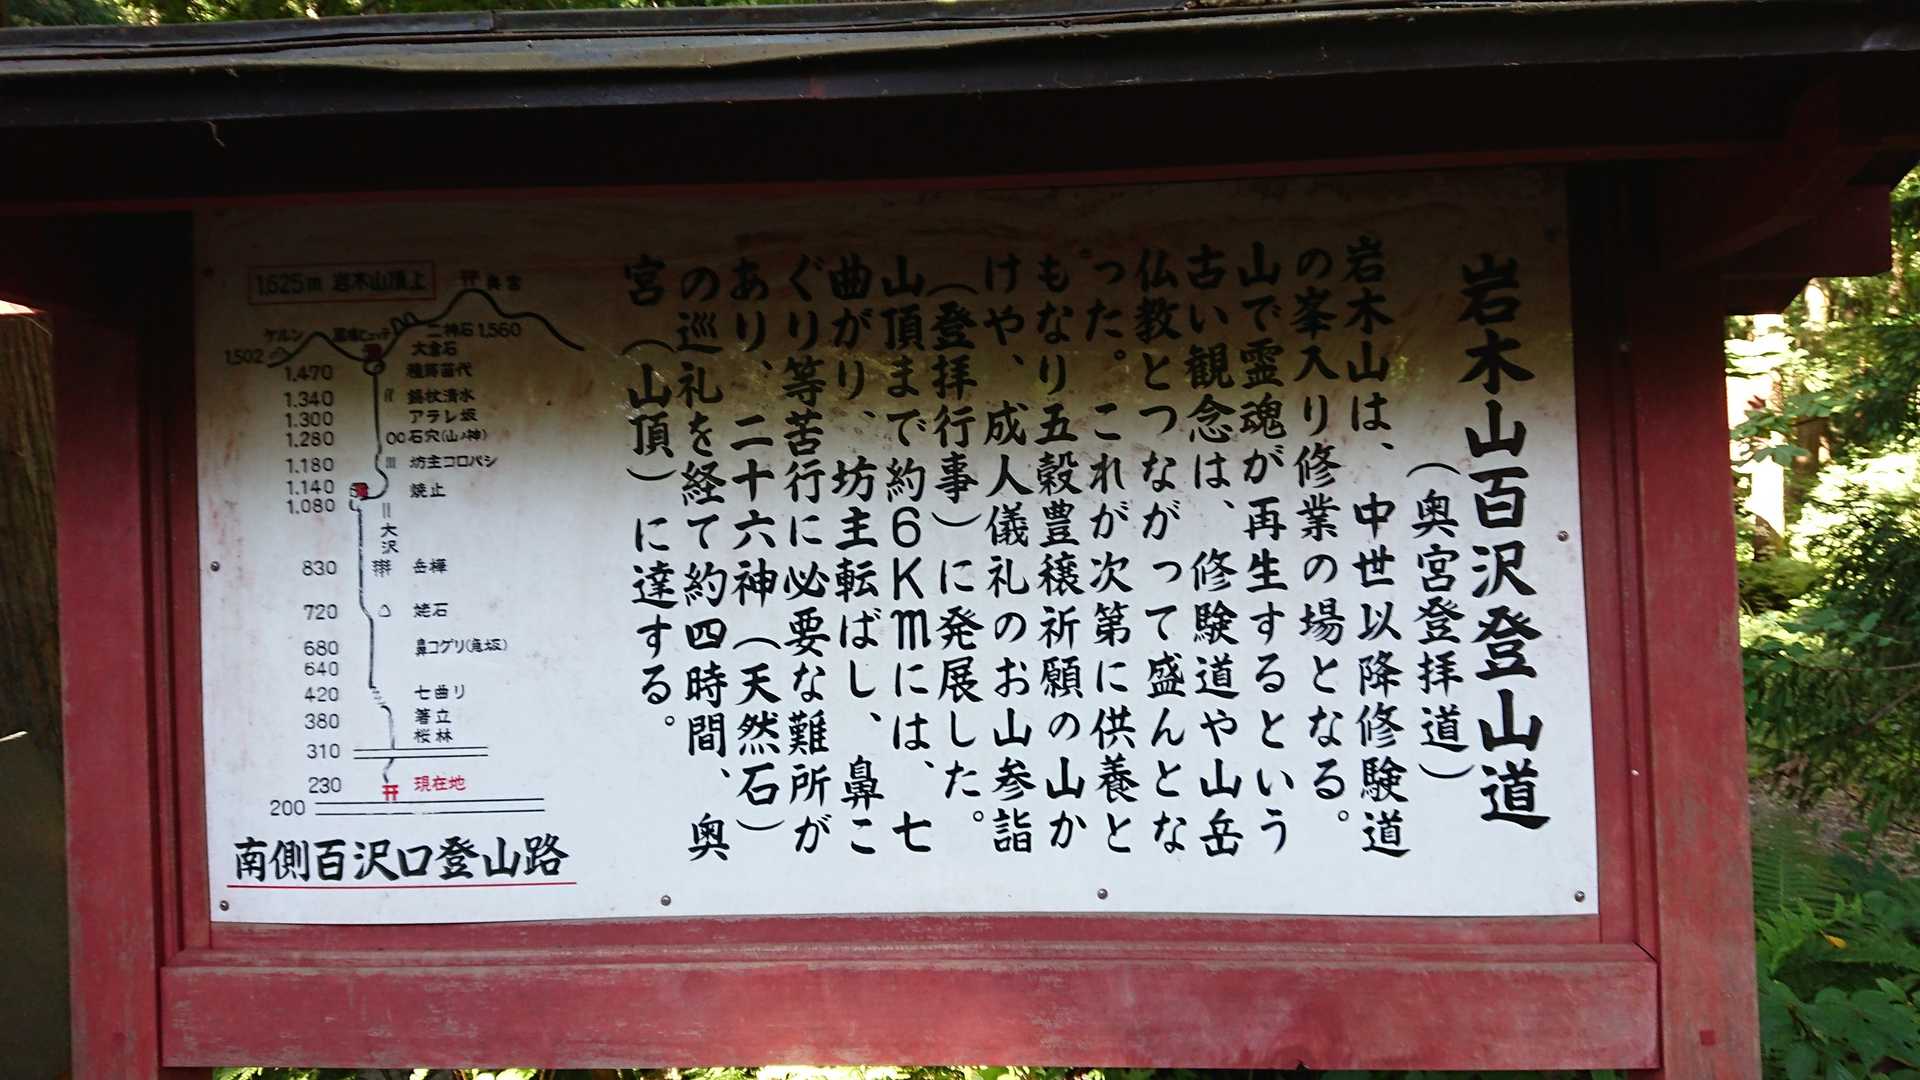 岩木山百沢登山道
（奥宮登拝道）
岩木山は、中世以降修験道
の峯入り修業の場となる。
山で霊魂が再生するという
古い観念は、修験道や山岳
仏教とつながって盛んとな
った。これが次第に供養と
もなり五穀豊穣祈願の山か
けや、成人儀礼のお山参詣
（登拝行事）に発展した。
山頂まで約6Kmには、七
曲がり、坊主転ばし、鼻こ
ぐり等苦行に必要な難所が
あり、二十六神（天然石）
の巡礼を経て約四時間、奥
宮（山頂）に達する。
1,625m 岩木山頂上
奥宮
ケルン
二神石1,560
1,502
大倉石
1.470 種蒔苗代
1.340 錫杖清水
1.300 アラレ坂
1.280 石穴(山ノ神)
1.180 坊主コロバシ
1.140 焼止
1.080
大沢
830 岳樺
720 姥石
680 鼻コグリ(急坂)
640
420 七曲り
380 箸立
桜林
310
230 現在地
200
南側百沢口登山路